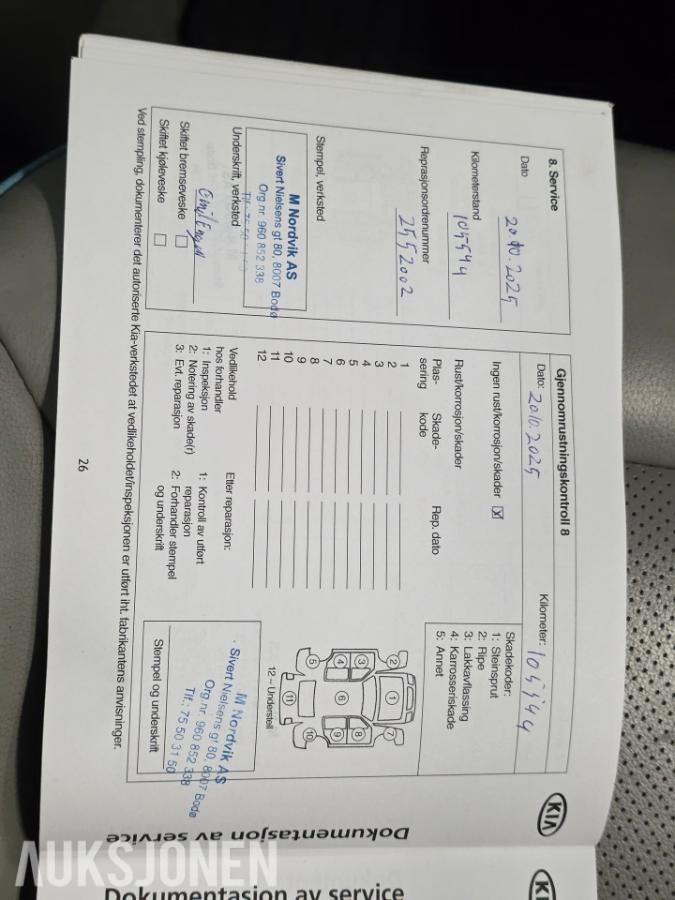 8. Service
Dato 20.10.2025
Kilometerstand
Reprasjonsordrenummer 2552002
Stempel, verksted
M Nordvik AS
Sivert Nielsens gt 80, 8007 Bodø
Org.nr. 960 852 338
Underskrift, verksted
Skiftet bremseveske
Skiftet kjøleveske
Gjennomrustningskontroll 8
Dato: 20.10.2025
Kilometer:
Ingen rust/korrosjon/skader X
Rust/korrosjon/skader
Skadekoder:
1: Steinsprut
2: Ripe
3: Lakkavflassing
4: Karrosseriskade
5: Annet
Plas-
sering
Skade-
kode
Rep. dato
1
2
3
4
5
6
7
8
9
10
11
12
2
7
1
3
8
4
6
9
5
11
10
12 – Understell
Vedlikehold
hos forhandler
1: Inspeksjon
2: Notering av skade(r)
3: Evt. reparasjon
Etter reparasjon:
1: Kontroll av utført
reparasjon
2: Forhandler stempel
og underskrift
M Nordvik AS
Sivert Nielsens gt 80, 8007 Bodø
Org.nr. 960 852 338
Tlf.: 75 50 31 50
Stempel og underskrift
Ved stempling, dokumenterer det autoriserte Kia-verkstedet at vedlikeholdet/inspeksjonen er utført iht. fabrikantens anvisninger.
26
KIA
Dokumentasjon av service
Dokumentasjon av service
AUKSJONEN